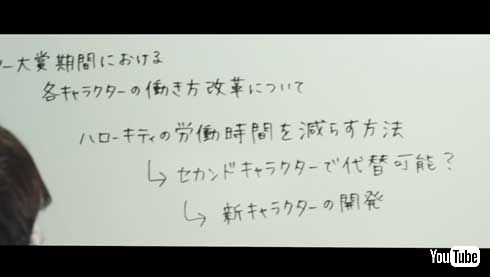 ー大賞期間における
各キャラクターの働き方改革について
ハローキティの労働時間を減らす方法
↳ セカンドキャラクターで代替可能？
↳ 新キャラクターの開発
YouTube